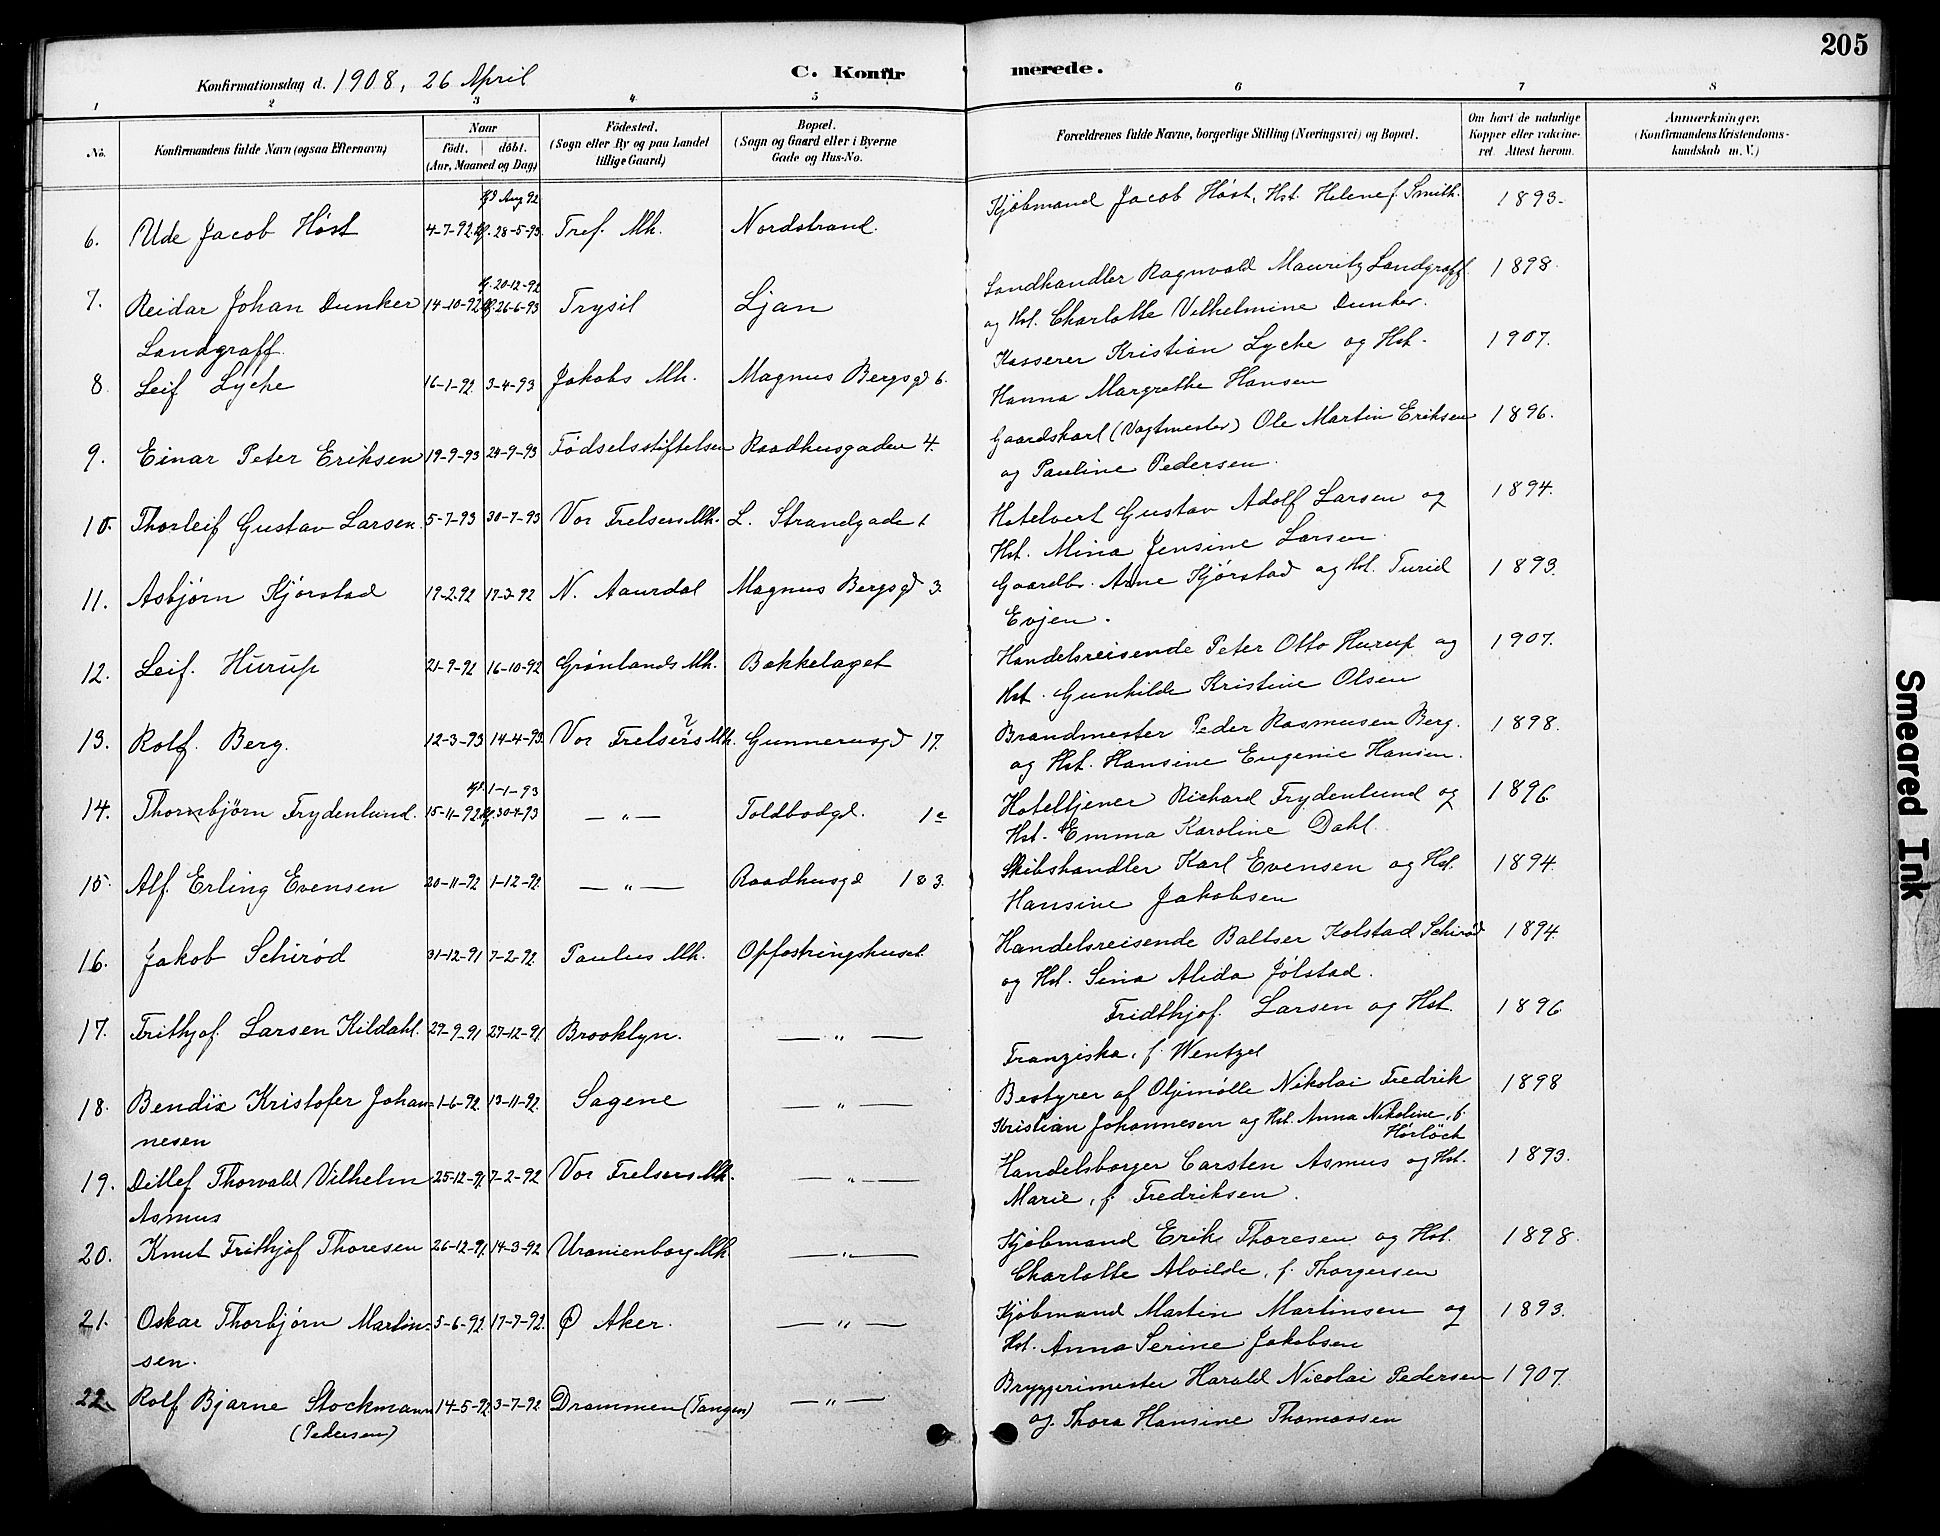 205
Konfirmationsdag d. 1908, 26 April
C. Konfirmerede.
1 2 3 4 5 6 7 8
No. Konfirmandens fulde Navn (ogsaa Efternavn) Naar født. døbt. (Aar, Maaned og Dag) Fødested. (Sogn eller By og paa Landet tillige Gaard) Bopæl. (Sogn og Gaard eller i Byerne Gade og Hus-No. Forældrenes fulde Navne, borgerlige Stilling (Næringsvei) og Bopæl. Om havt de naturlige Kopper eller vaccineret. Attest herom. Anmærkninger. (Konfirmandens Kristendomskundskab m. V.)
Aug 92
6. Ude Jacob Høst 4-7-92 28-5-93 Tref. Mh. Nordstrand. Kjøbmand Jacob Høst, Hst. Helene f. Smith. 1893.
20-12-92
7. Reidar Johan Dunker 14-10-92 26-6-93 Trysil Ljan Landhandler Ragnvald Mauritz Landgraff 1898.
Landgraff. og Hst. Charlotte Vilhelmine Dunker.
8. Leif Lyche 16-1-92 3-4-93 Jakobs Mh. Magnus Bergsgd 6. Kasserer Kristian Lyche og Hst. 1907.
Hanna Margrethe Hansen
9. Einar Peter Eriksen 19-9-93 24-9-93 Fødselsstiftelsen Raadhusgaden 4. Gaardskarl (Vagtmester) Ole Martin Eriksen 1896.
og Pauline Pedersen.
10. Thorleif Gustav Larsen. 5-7-93 30-7-93 Vor Frelsers Mh. L. Strandgade 1 Hotelvert Gustav Adolf Larsen og 1894.
Hst. Mina Jensine Larsen.
11. Asbjørn Kjørstad 19-2-92 17-3-92 N. Aaurdal Magnus Bergsgd 3. Gaardbr. Arne Kjørstad og Hst. Turid 1893.
Evjen.
12. Leif. Hurup 21-9-92 16-10-92 Grønlands Mh. Bækkelaget Handelsreisende Peter Otto Hurup og 1907.
Hst. Gunhilde Kristine Olsen
13. Rolf. Berg. 12-3-93 14-4-93. Vor Frelsers Mh. ? Gunnerusgd 17. Brandmester Peder Rasmusen Berg. 1898.
og Hst. Hansine Eugenie Hansen.
1-1-93
14. Thornbjørn Frydenlund. 15-11-92 30-4-93 — „ — Toldbodgd. 1c Hoteltjener Richard Frydenlund og 1896
Hst. Emma Karoline Dahl.
15. Alf Erling Evensen 20-11-92 1-12-92. — „ — Raadhusgd 1 & 3. Skibshandler Karl Evensen og Hst. 1894.
Hansine Jakobsen
16. Jakob Schirød 31-12-91 7-2-92. Paulus Mh. Opfostringshuset Handelsreisende Baltser Kolstad Schirød 1894.
og Hst. Sina Alida Jølstad.
17. Frithjof. Larsen Kildahl. 29-9-91 27-12-91 Brooklyn. — „ — Fridthjof. Larsen og Hst. 1896
Franziska, f. Wentzel
18. Bendix Kristofer Johan- 1-6-92. 13-11-92. Sagene — „ — Bestyrer af Oljemølle Nikolai Fredrik 1898
nesen Kristian Johannesen og Hst. Anna Nikoline, f.
Hørlöck
19. Ditlef Thorvald Vilhelm 25-12-91 7-2-92 Vor Frelsers Mh. — „ — Handelsborger Carsten Asmus og Hst. 1893.
Asmus Marie, f. Fredriksen.
20. Knut Frithjof Thoresen 26-12-91. 14-3-92 Uranienborg Mh. — „ — Kjøbmand Erik Thoresen og Hst. 1898.
Charlotte Alvilde, f. Thorgersen
21. Oskar Thorbjørn Martin- 5-6-92. 17-7-92. Ø Aker. — „ — Kjøbmand Martin Martinsen og 1893.
sen. Hst. Anna Serine Jakobsen
22. Rolf Bjarne Stockmann 14-5-92 3-7-92 Drammen (Tangen) — „ — Bryggerimester Harald Nicolai Pedersen 1907.
(Pedersen) og Thora Hansine Thomassen
Smeared Ink